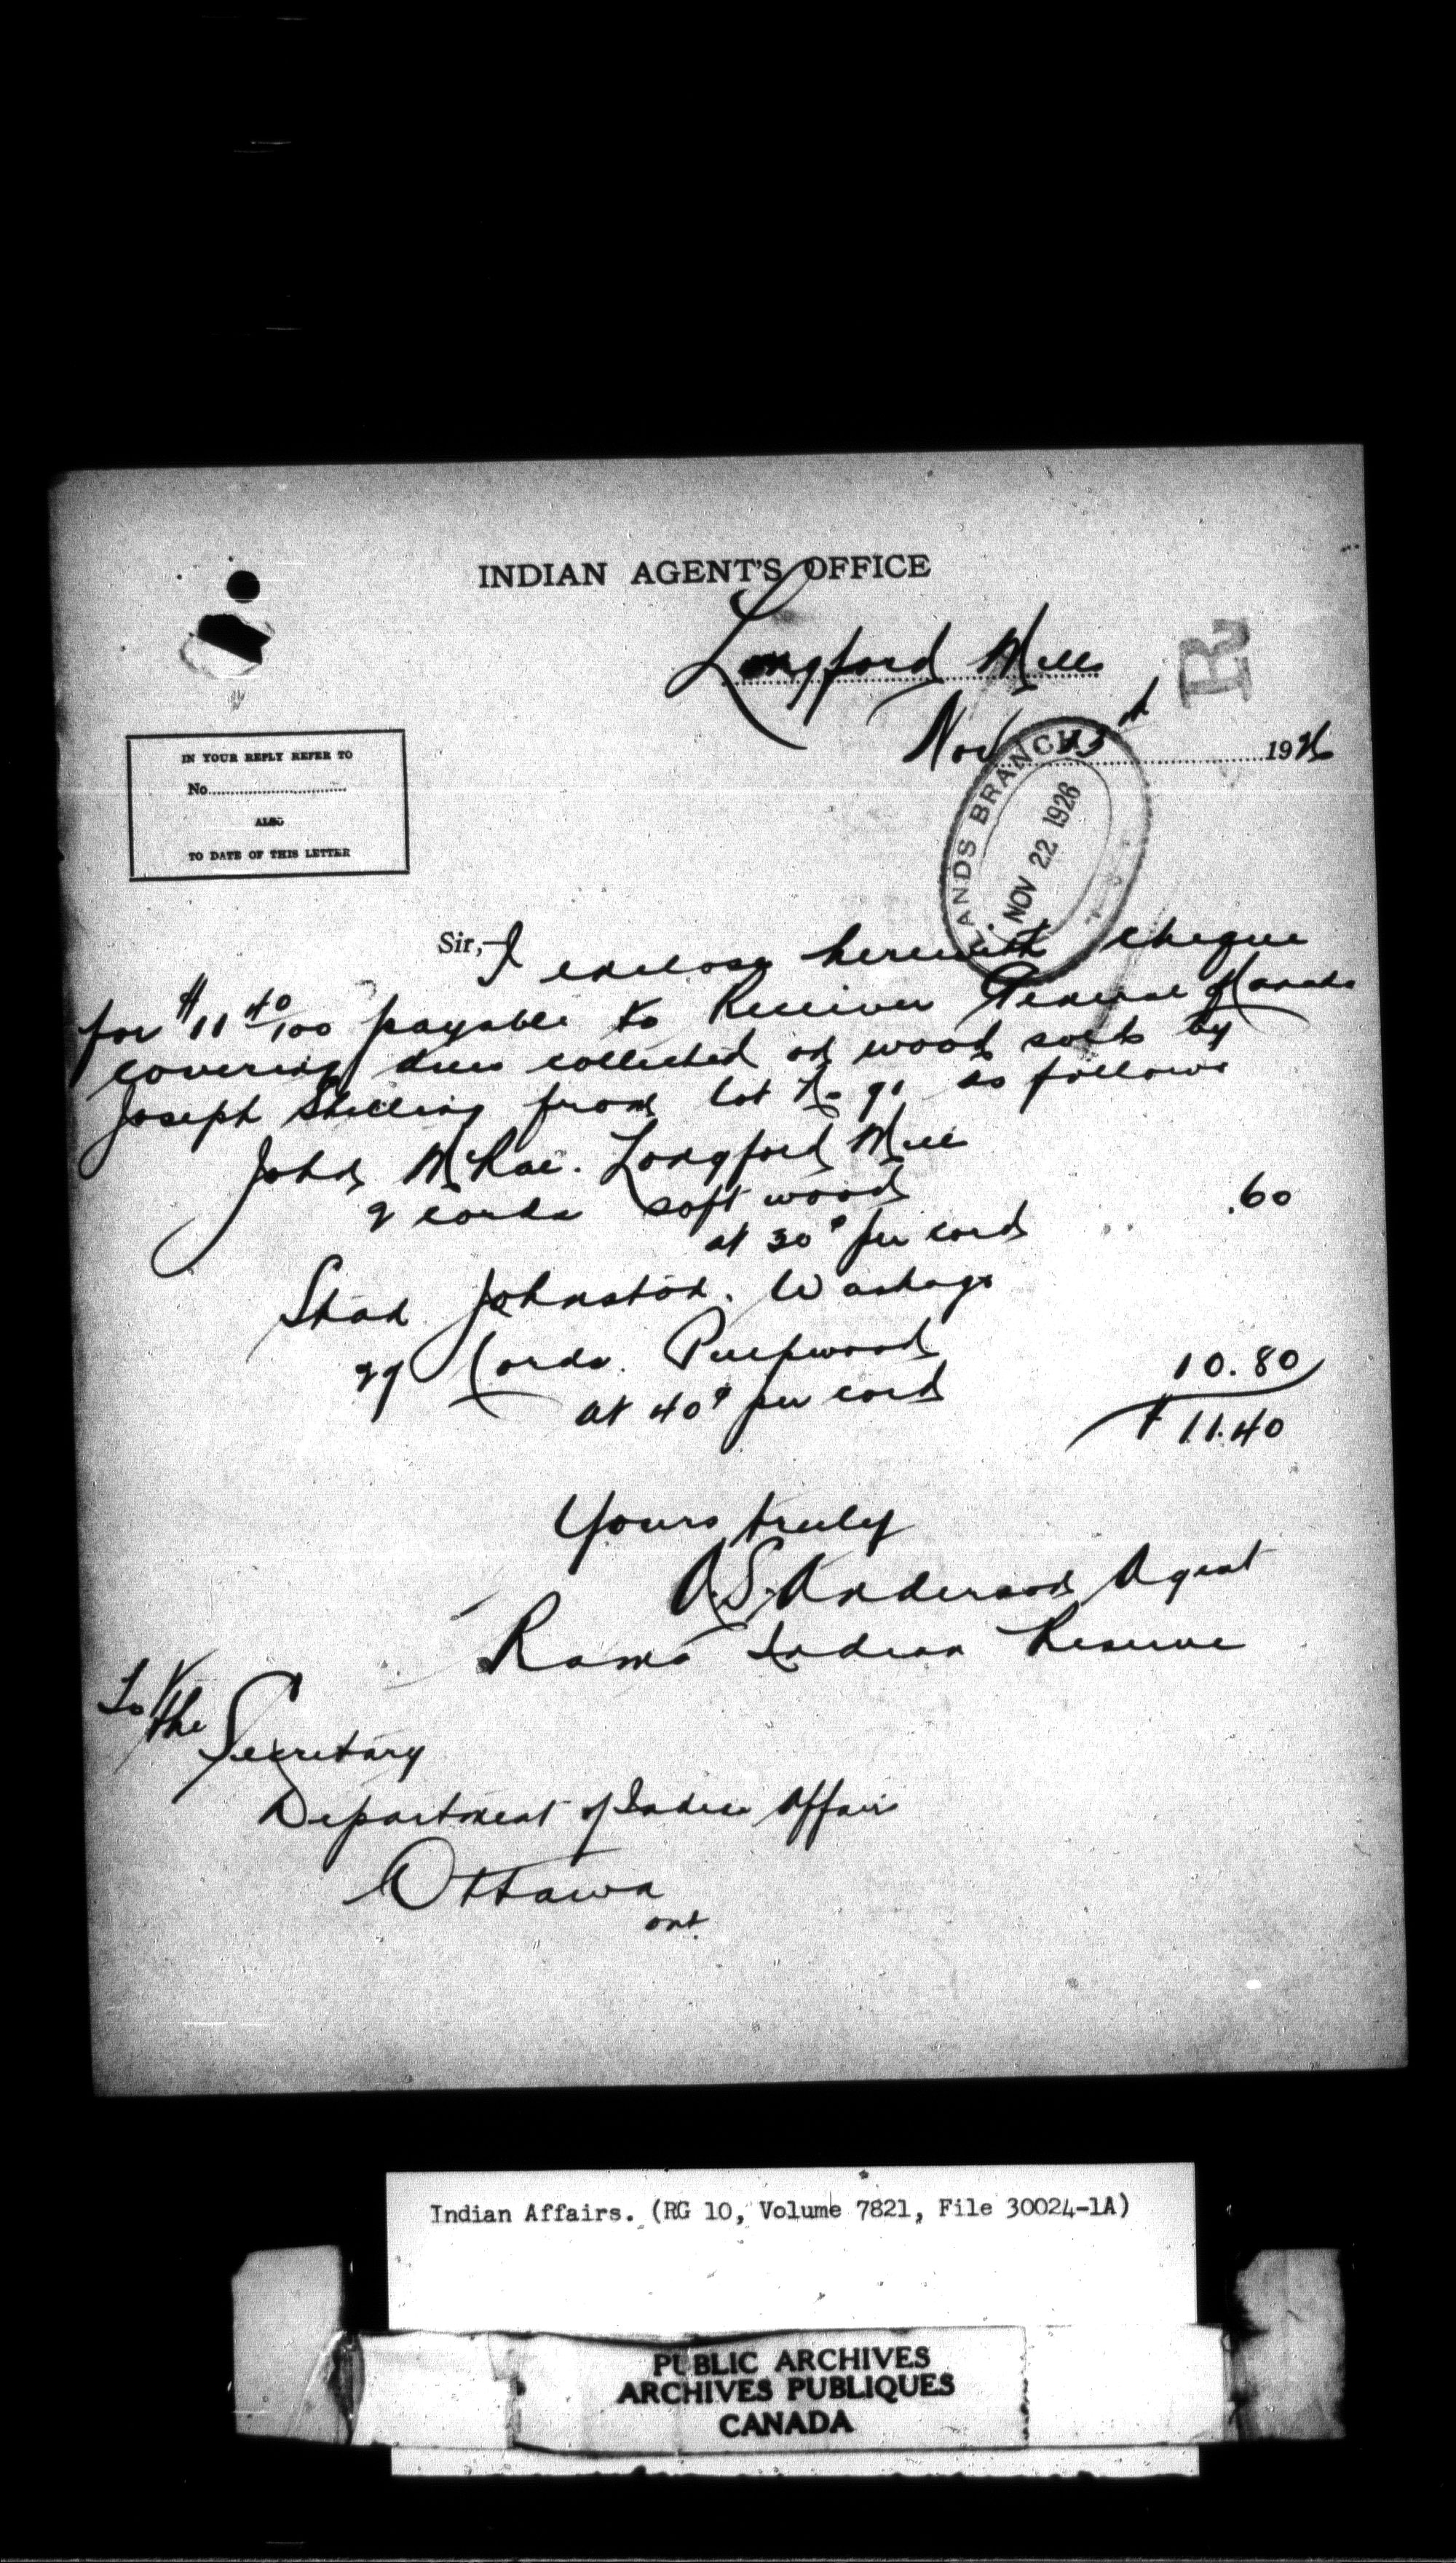 INDIAN AGENT'S OFFICE
Longford Mills
R
Nov 15th 1926
LANDS BRANCH
NOV 22 1926
IN YOUR REPLY REFER TO
No
ALSO
TO DATE OF THIS LETTER
Sir,- I enclose herewith cheque
for $11 40/100 payable to Receiver General of Canada
covering dues collected on wood sold by
Joseph Shilling from lot No 91 as follows
John McRae. Longford Mill
2 cords soft wood
at 30¢ per cord .60
Johnston. Washago
27 Cords. Pulpwood
at 40¢ per cord 10.80
$11.40
Yours truly
A.S. Anderson Agent
Rama Indian Reserve
To the
Secretary
Department of Indian Affairs
Ottawa
ont.
Indian Affairs. (RG 10, Volume 7821, File 30024-1A)
PUBLIC ARCHIVES
ARCHIVES PUBLIQUES
CANADA